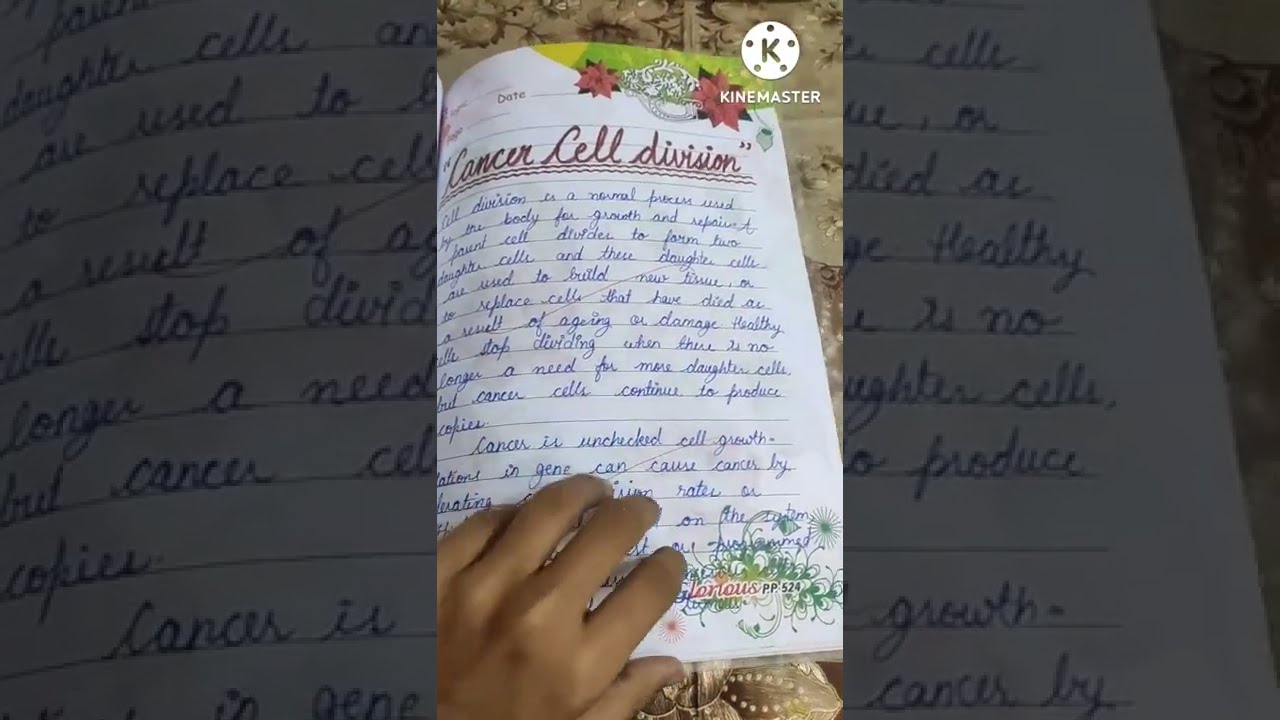 KINEMASTER
Date
"Cancer Cell division"
Cell division is a normal process used
by the body for growth and repair. A
parent cell divides to form two
daughter cells and these daughter cells
are used to build new tissue, or
to replace cells that have died as
a result of ageing or damage Healthy
cells stop dividing when there is no
longer a need for more daughter cells,
but cancer cells continue to produce
copies.
Cancer is unchecked cell growth-
in gene can cause cancer by
rates or
on the system
or programmed
PP-524